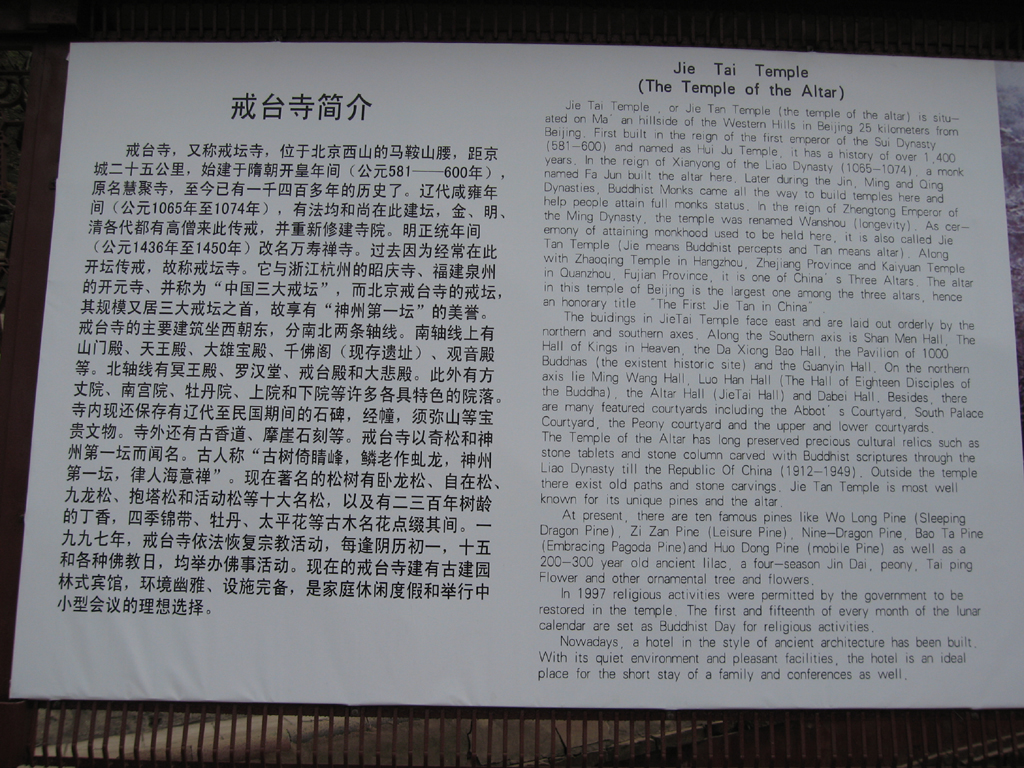 戒台寺简介
戒台寺，又称戒坛寺，位于北京西山的马鞍山腰，距京
城二十五公里，始建于隋朝开皇年间（公元581——600年），
原名慧聚寺，至今已有一千四百多年的历史了。辽代咸雍年
间（公元1065年至1074年），有法均和尚在此建坛，金、明、
清各代都有高僧来此传戒，并重新修建寺院。明正统年间
（公元1436年至1450年）改名万寿禅寺。过去因为经常在此
开坛传戒，故称戒坛寺。它与浙江杭州的昭庆寺、福建泉州
的开元寺、并称为“中国三大戒坛”，而北京戒台寺的戒坛，
其规模又居三大戒坛之首，故享有“神州第一坛”的美誉。
戒台寺的主要建筑坐西朝东，分南北两条轴线。南轴线上有
山门殿、天王殿、大雄宝殿、千佛阁（现存遗址）、观音殿
等。北轴线有冥王殿、罗汉堂、戒台殿和大悲殿。此外有方
丈院、南宫院、牡丹院、上院和下院等许多各具特色的院落。
寺内现还保存有辽代至民国期间的石碑，经幢，须弥山等宝
贵文物。寺外还有古香道、摩崖石刻等。戒台寺以奇松和神
州第一坛而闻名。古人称“古树倚晴峰，鳞老作虬龙，神州
第一坛，律人海意禅”。现在著名的松树有卧龙松、自在松、
九龙松、抱塔松和活动松等十大名松，以及有二三百年树龄
的丁香，四季锦带、牡丹、太平花等古木名花点缀其间。一
九九七年，戒台寺依法恢复宗教活动，每逢阴历初一，十五
和各种佛教日，均举办佛事活动。现在的戒台寺建有古建园
林式宾馆，环境幽雅、设施完备，是家庭休闲度假和举行中
小型会议的理想选择。
Jie Tai Temple
(The Temple of the Altar)
Jie Tai Temple , or Jie Tan Temple (the temple of the altar) is situ-
ated on Ma' an hillside of the Western Hills in Beijing 25 kilometers from
Beijing. First built in the reign of the first emperor of the Sui Dynasty
(581-600) and named as Hui Ju Temple, it has a history of over 1,400
years. In the reign of Xianyong of the Liao Dynasty (1065-1074), a monk
named Fa Jun built the altar here. Later during the Jin, Ming and Qing
Dynasties, Buddhist Monks came all the way to build temples here and
help people attain full monks status. In the reign of Zhengtong Emperor of
the Ming Dynasty, the temple was renamed Wanshou (longevity). As cer-
emony of attaining monkhood used to be held here, it is also called Jie
Tan Temple (Jie means Buddhist percepts and Tan means altar). Along
with Zhaoqing Temple in Hangzhou, Zhejiang Province and Kaiyuan Temple
in Quanzhou, Fujian Province, it is one of China' s Three Altars. The altar
in this temple of Beijing is the largest one among the three altars, hence
an honorary title "The First Jie Tan in China".
The buidings in JieTai Temple face east and are laid out orderly by the
northern and southern axes. Along the Southern axis is Shan Men Hall, The
Hall of Kings in Heaven, the Da Xiong Bao Hall, the Pavilion of 1000
Buddhas (the existent historic site) and the Guanyin Hall. On the northern
axis lie Ming Wang Hall, Luo Han Hall (The Hall of Eighteen Disciples of
the Buddha), the Altar Hall (JieTai Hall) and Dabei Hall. Besides, there
are many featured courtyards including the Abbot' s Courtyard, South Palace
Courtyard, the Peony courtyard and the upper and lower courtyards.
The Temple of the Altar has long preserved precious cultural relics such as
stone tablets and stone column carved with Buddhist scriptures through the
Liao Dynasty till the Republic Of China (1912-1949). Outside the temple
there exist old paths and stone carvings. Jie Tan Temple is most well
known for its unique pines and the altar.
At present, there are ten famous pines like Wo Long Pine (Sleeping
Dragon Pine), Zi Zan Pine (Leisure Pine), Nine-Dragon Pine, Bao Ta Pine
(Embracing Pagoda Pine)and Huo Dong Pine (mobile Pine) as well as a
200-300 year old ancient lilac, a four-season Jin Dai, peony, Tai ping
Flower and other ornamental tree and flowers.
In 1997 religious activities were permitted by the government to be
restored in the temple. The first and fifteenth of every month of the lunar
calendar are set as Buddhist Day for religious activities.
Nowadays, a hotel in the style of ancient architecture has been built.
With its quiet environment and pleasant facilities, the hotel is an ideal
place for the short stay of a family and conferences as well.